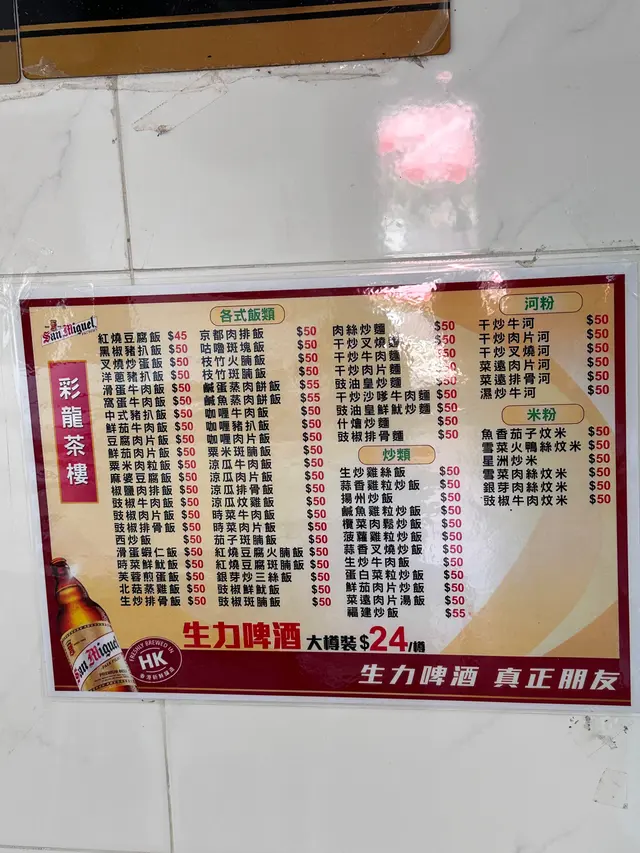 San Miguel
彩龍茶樓
各式飯類
紅燒豆腐飯 $45
黑椒豬扒飯 $50
叉燒炒蛋飯 $50
洋蔥豬扒飯 $50
滑蛋牛肉飯 $50
窩蛋牛肉飯 $50
中式豬扒飯 $50
鮮茄牛肉飯 $50
豆腐肉片飯 $50
鮮茄肉片飯 $50
粟米肉粒飯 $50
麻婆豆腐飯 $50
椒鹽肉排飯 $50
豉椒牛肉飯 $50
豉椒肉片飯 $50
豉椒排骨飯 $50
西炒飯 $50
滑蛋蝦仁飯 $50
時菜鮮魷飯 $50
芙蓉煎蛋飯 $50
北菇蒸雞飯 $50
生炒排骨飯 $50
京都肉排飯 $50
咕嚕斑塊飯 $50
枝竹火腩飯 $50
枝竹斑腩飯 $50
鹹蛋蒸肉餅飯 $55
鹹魚蒸肉餅飯 $55
咖喱牛肉飯 $50
咖喱豬扒飯 $50
咖喱肉片飯 $50
粟米斑腩飯 $50
涼瓜牛肉飯 $50
涼瓜肉片飯 $50
涼瓜排骨飯 $50
涼瓜炆雞飯 $50
時菜牛肉飯 $50
時菜肉片飯 $50
茄子斑腩飯 $50
紅燒豆腐火腩飯 $50
紅燒豆腐斑腩飯 $50
銀芽炒三絲飯 $50
豉椒鮮魷飯 $50
豉椒斑腩飯 $50
肉絲炒麵 $50
干炒叉燒麵 $50
干炒牛肉麵 $50
干炒肉片麵 $50
豉油皇炒麵 $50
干炒沙嗲牛肉麵 $50
豉油皇鮮魷炒麵 $50
什燴炒麵 $50
豉椒排骨麵 $50
炒類
生炒雞絲飯 $50
蒜香雞粒炒飯 $50
揚州炒飯 $50
鹹魚雞粒炒飯 $50
欖菜肉鬆炒飯 $50
菠蘿雞粒炒飯 $50
蒜香叉燒炒飯 $50
生炒牛肉飯 $50
蛋白菜粒炒飯 $50
鮮茄肉片炒飯 $50
菜遠肉片湯飯 $50
福建炒飯 $55
河粉
干炒牛河 $50
干炒肉片河 $50
干炒叉燒河 $50
菜遠肉片河 $50
菜遠排骨河 $50
濕炒牛河 $50
米粉
魚香茄子炆米 $50
雪菜火鴨絲炆米 $50
星洲炒米 $50
雪菜肉絲炆米 $50
銀芽肉絲炆米 $50
豉椒牛肉炆米 $50
生力啤酒 大樽裝$24/樽
San Miguel
FRESHLY BREWED IN
HK
生力啤酒 真正朋友